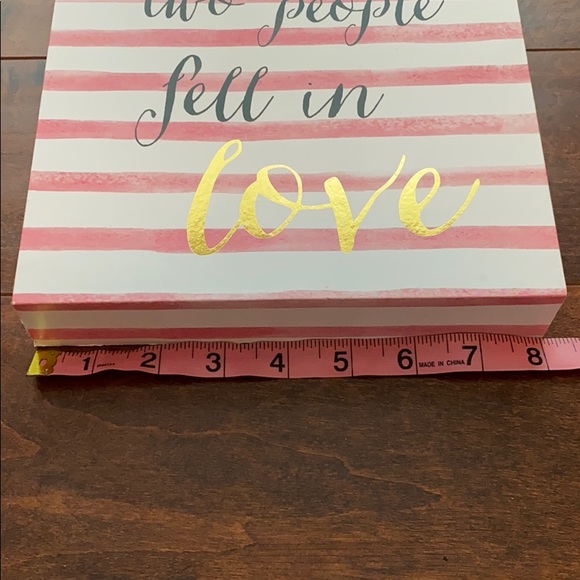 two people
fell in
love
1 2 3 4 5 6 MADE IN CHINA 7 8